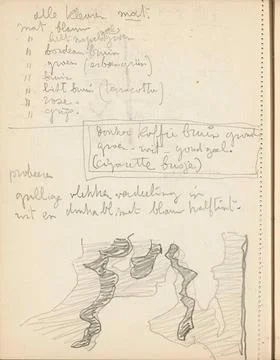 alle kleuren mat.
mat blauw
" licht
" bordeau bruin
" groen (erbsengrün)
" bruin
" licht bruin (terracotta)
" rose
" grijs.
donker koffie bruin grond
groen - wit - goud geel
(cigarette
probeeren
grillige vlekken verdeeling in
wit en donker mat blauw halftint.